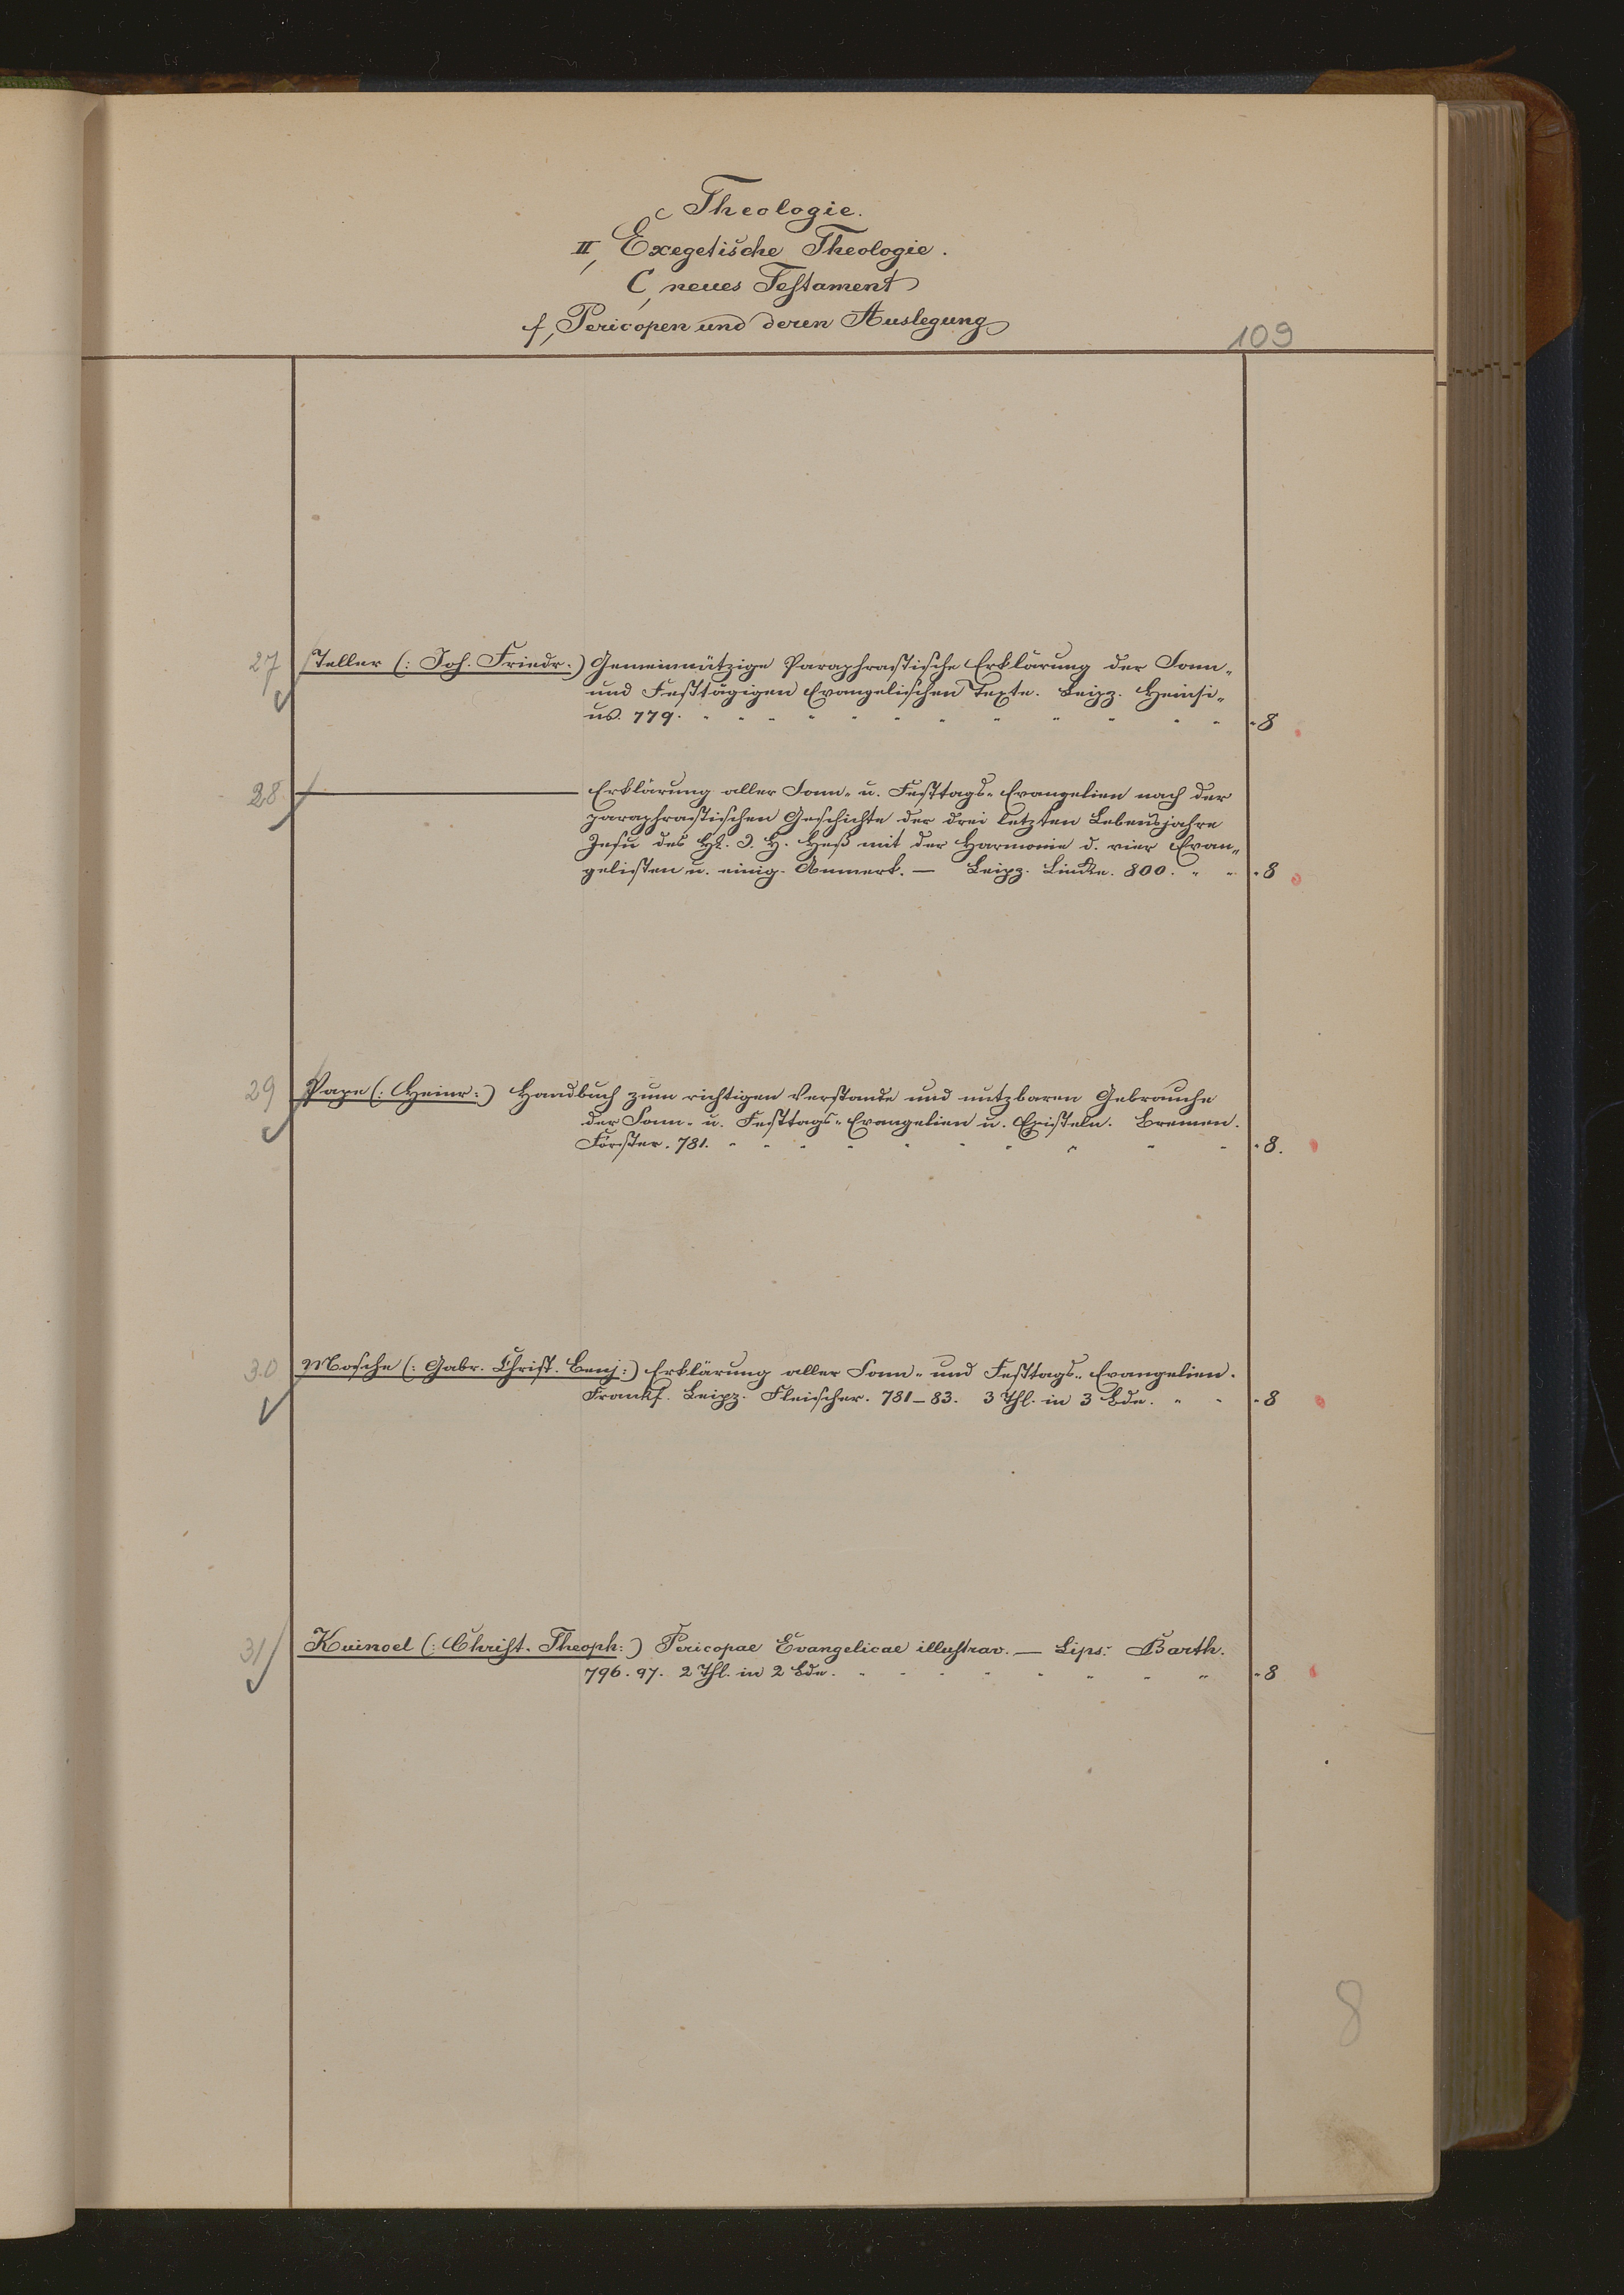 Theologie.
II, Exegetische Theologie.
C, neues Testament
f, Pericopen und deren Auslegung
109
27 Teller (: Joh. Friedr:) Gemeinnützige Paraphrastische Erklärung der Sonn-
und Festtägigen Evangelischen Texte. Leipz. Heinsi-
us. 779. " 8
28. — Erklärung aller Sonn- u. Festtags-Evangelien nach der
paraphrastischen Geschichte der drei letzten Lebensjahre
Jesu des H. J. H. Heß mit der Harmonie d. vier Evan-
gelisten u. einig. Anmerk. — Leipz. Lincke. 800. " 8
29 Pape (: Heinr:) Handbuch zum richtigen Verstande und nutzbaren Gebrauche
der Sonn- u. Festtags-Evangelien u. Episteln. Bremen.
Förster. 781. " 8.
30 Mosche (: Gabr. Christ. Benj:) Erklärung aller Sonn- und Festtags-Evangelien.
Frankf. Leipz. Fleischer. 781–83. 3 Thl. in 3 Bde. " 8
31 Kuinoel (: Christ. Theoph:) Pericopae Evangelicae illustrav. — Lips: Barth.
796. 97. 2 Thl. in 2 Bde. " 8
8